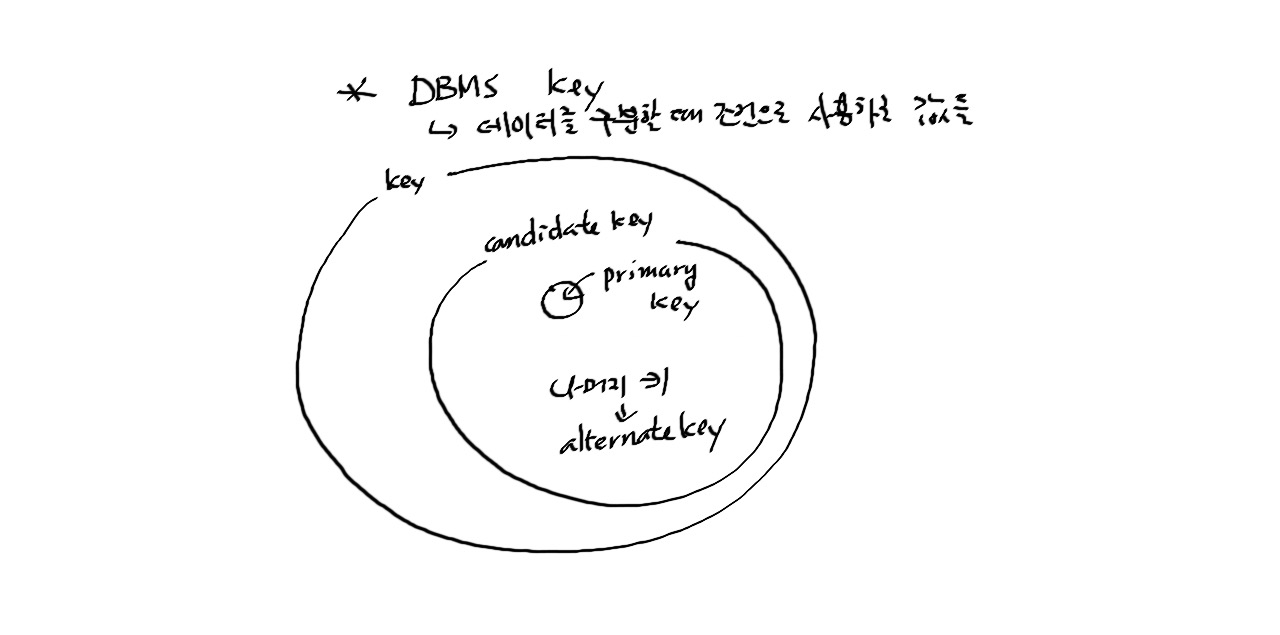 * DBMS key
↳ 데이터를 구분할 때 조건으로 사용하는 값들
key
candidate key
primary
key
나머지 키
↓
alternate key